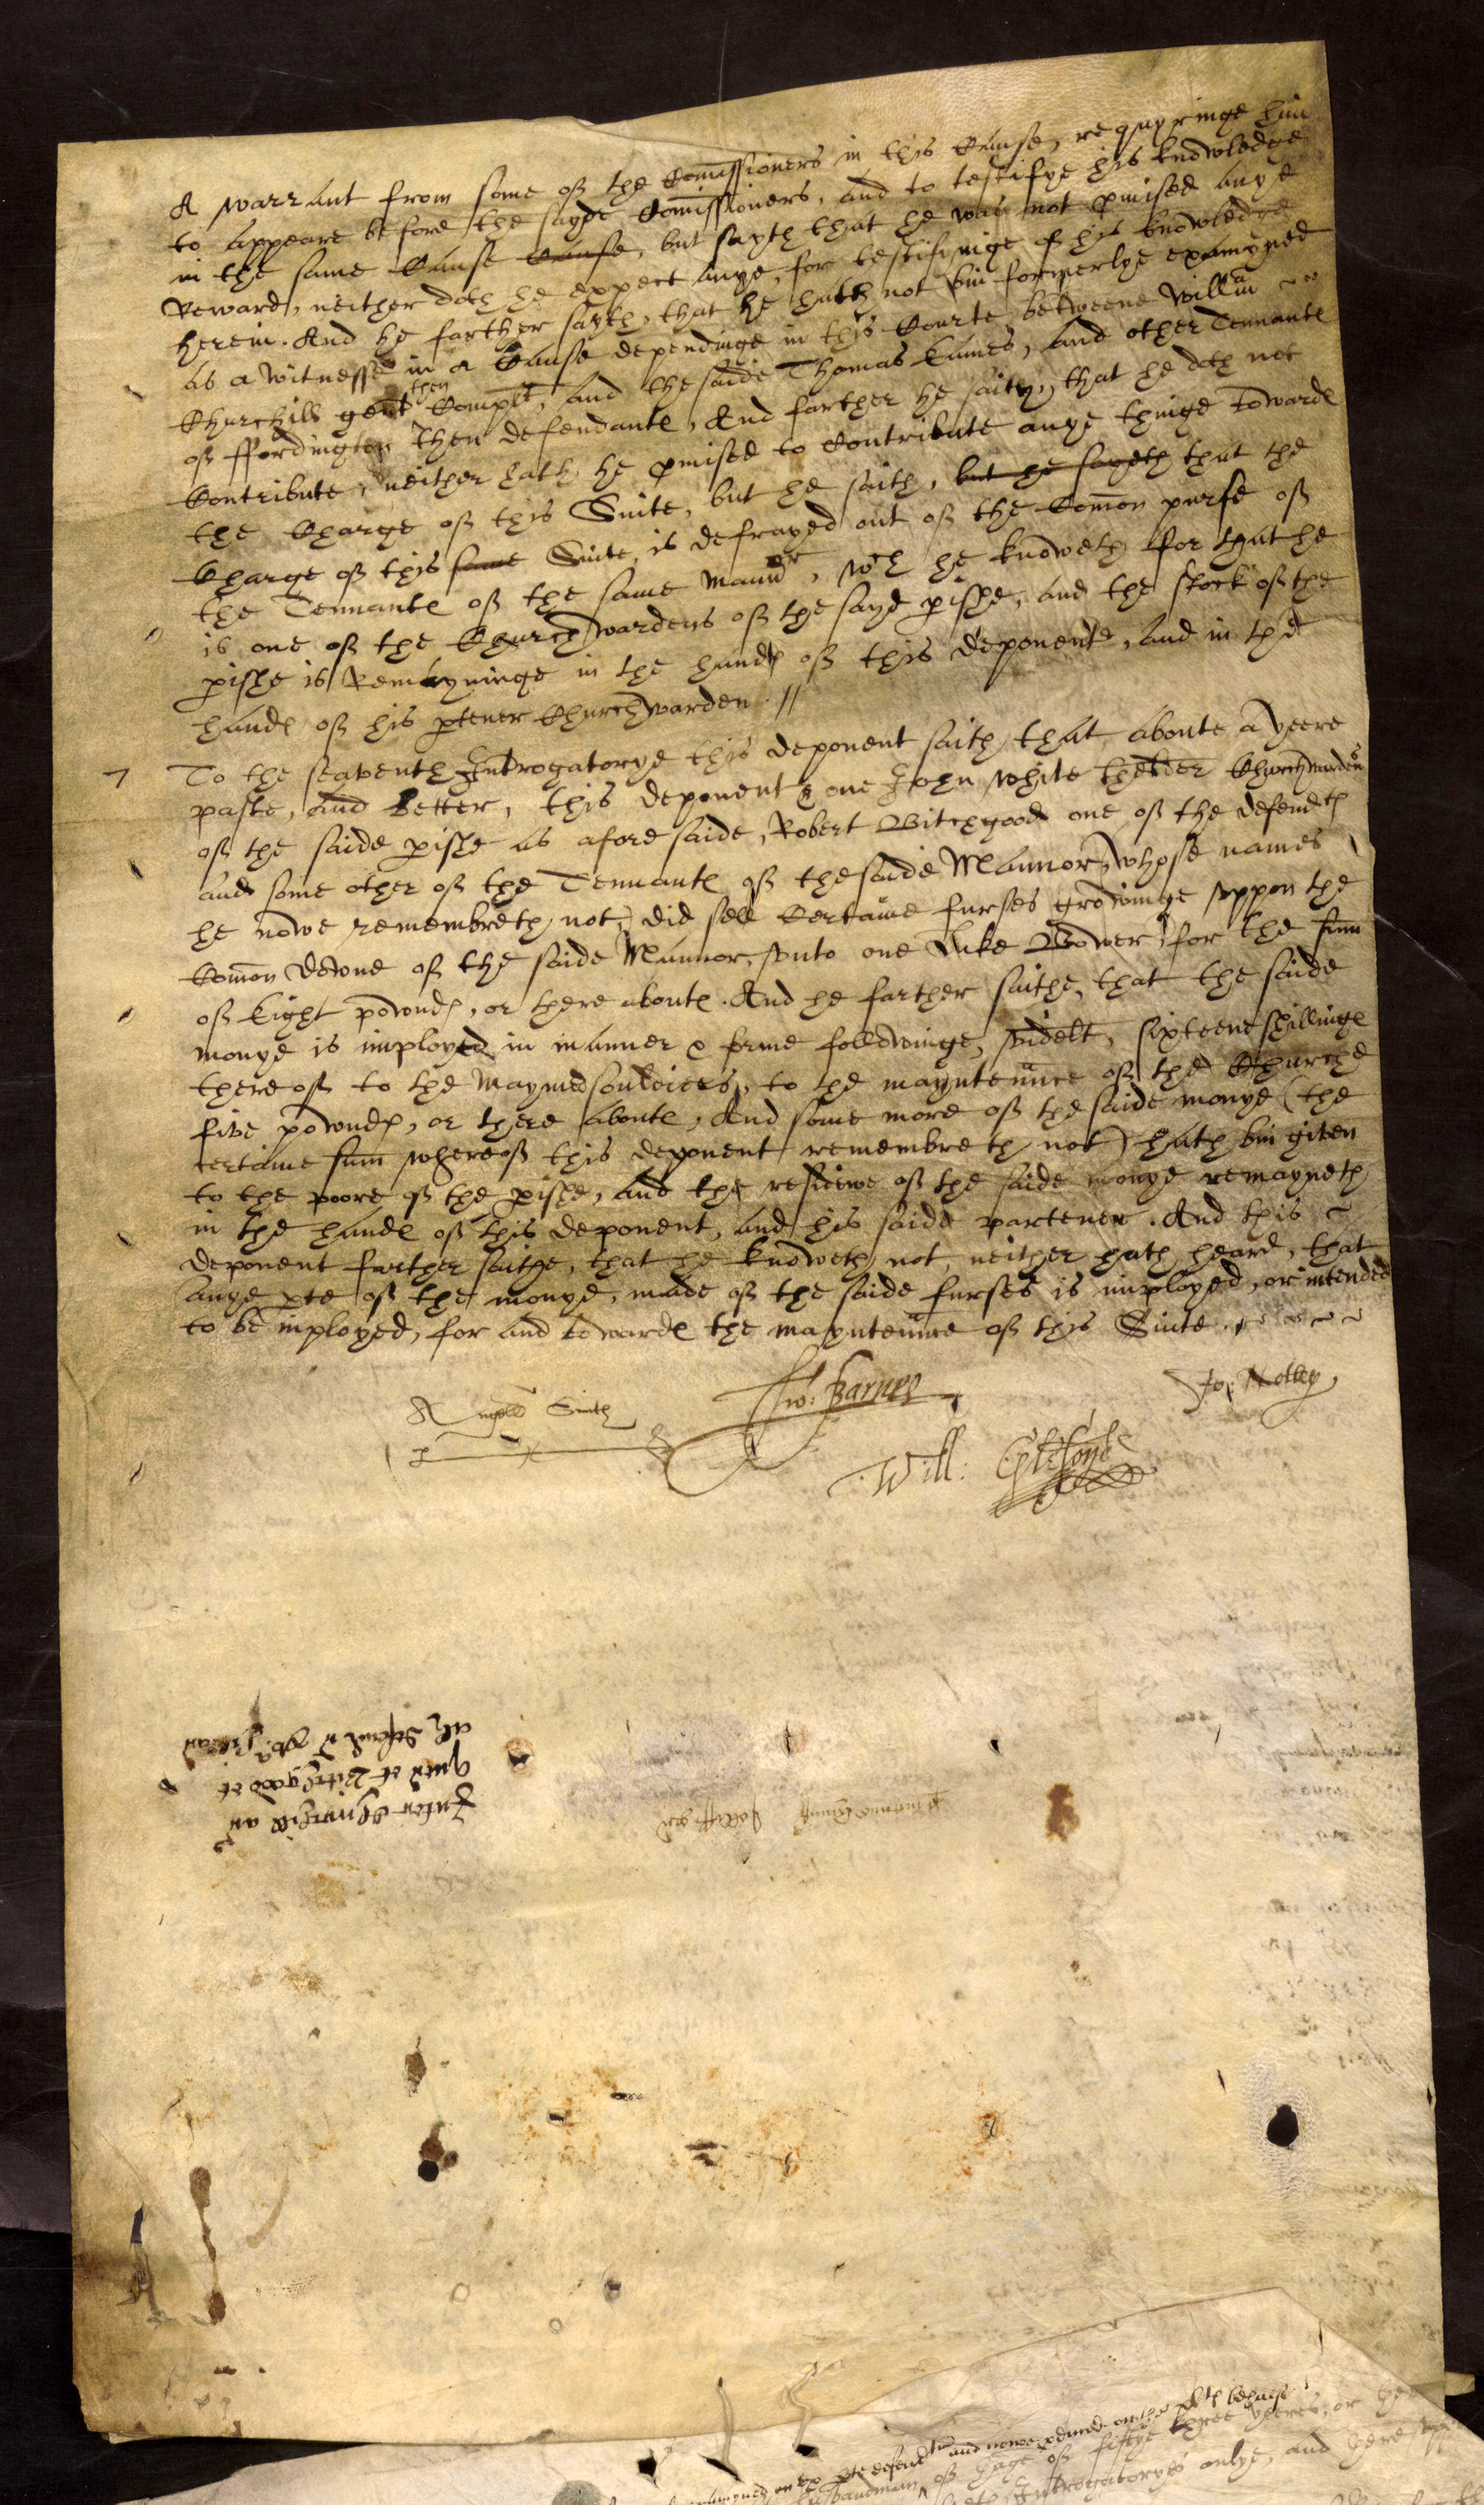 A warrant from some of the Comissioners in this Cause, requyringe him
to appeare before the sayde Comissioners, and to testifye his knowledge
in the same Cause Cause, but sayth that he was not pmised anye
Reward, neither doth he expect anye, for testifyinge of his knowledge
herein. And he farther sayth, that he hath not bin formerlye examyned
as a witnesse in a Cause dependinge in this Courte betweene Willm
Churchill gent then Complt, and the saide Thomas Eames, and other Tennants
of ffordington then defendants, And farther he saith, that he doth not
Contribute, neither hath he pmised to Contribute anye thinge towards
the Charge of this Suite, but he saith, but he sayeth that the
Charge of this same Suite, is defrayed out of the Comon purse of
the Tennants of the same mannor, wch he knoweth for that he
is one of the Churchwardens of the sayd pishe, and the stock of the
pishe is Remayninge in the hands of this deponente, and in the
hands of his ptener Churchwarden //
7 To the seaventh Interogatorye this deponent saith, that aboute a yeere
paste, and better, this deponent & one John White thelder Churchwardens
of the saide pishe as afore saide, Robert Bitchgood one of the defendts
and some other of the Tennants of the saide Mannor, (whose names
he nowe remembreth not) did sell Certaine furses growinge uppon the
Comon downe of the saide Mannor, unto one Luke Bower, for the sum
of Eight pownds, or there abouts. And he farther saithe, that the saide
monye is imployed in manner & forme followinge, vidélt, sixteene shillings
there of to the Maymed souldiers, to the mayntennce of the Churche
five pownds, or there abouts, And some more of the saide monye (the
certaine sum whereof this deponent remembreth not) hath bin given
to the poore of the pishe, and the residewe of the saide monye remayneth
in the hands of this deponent, and his saide partener. And this
deponent farther saithe, that he knoweth not, neither hath heard, that
anye pte of the monye, made of the saide furses is imployed, or intended
to be imployed, for and towards the mayntennce of this Suite.
Angell Smith
Jo: Notley
Will:
Inter Churchill
quer et Bitchgood et
al defend
and nowe pduced on the
husbandman, of thage of fiftye three yeeres, or
Interogatoryes onlye, and